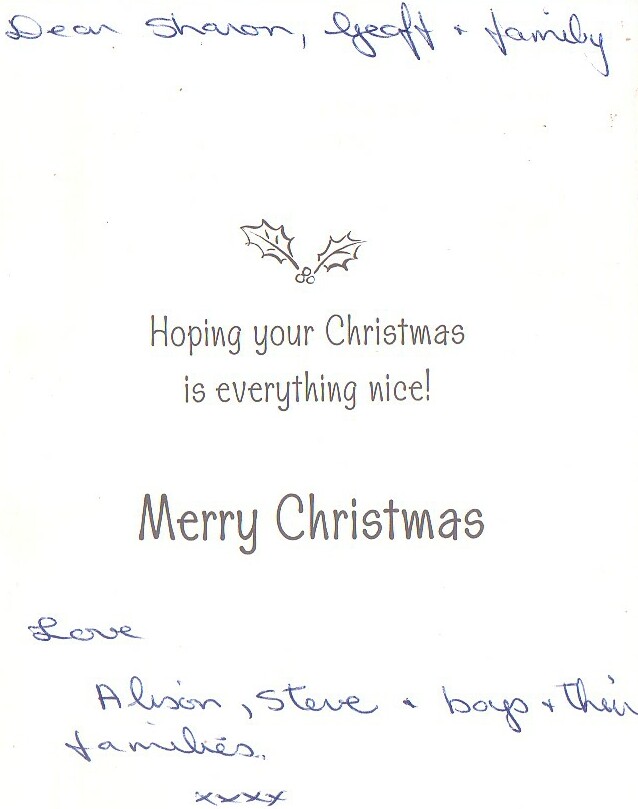 Dear Sharon, Geoff + family
Hoping your Christmas
is everything nice!
Merry Christmas
Love
Alison, Steve + boys + their
families.
xxxx